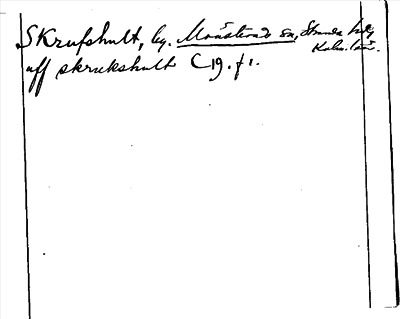 Skrufshult, by. Mönsterås sn, Stranda hd,
Kalm. län.
uff skrukshult C 19. f 1.